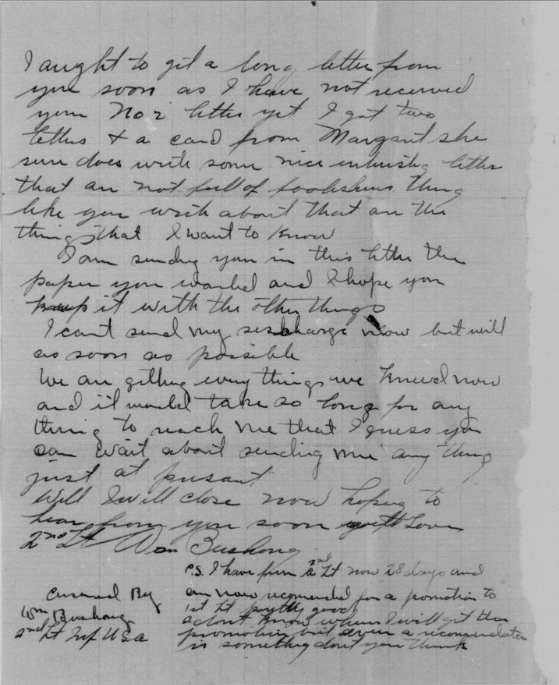 I aught to git a long letter from
you soon as I have not received
your No 2 letter yet I got two
letters & a card from Margart she
sure does write some nice letters
that are not full of foolishness thing
like you write about that are the
things that I want to know
I am sending you in this letter the
paper you wanted and I hope you
keep it with the other things
I cant send my discharge now but will
as soon as possible
We are getting every things we need now
and it would take so long for any
thing to reach me that I guess you
can wait about sending me any thing
just at present
Well I will close now hoping to
hear from you soon with Love
2nd Lt Wm Bushong
P.S. I have been 2nd Lt now 28 days and
am now recomended for a pomotion to
1st Lt pretty good
I dont know when I will get the
promotion but even a recomendation
is something dont you think
Censored By
Wm Bushong
2nd Lt Inf U S A